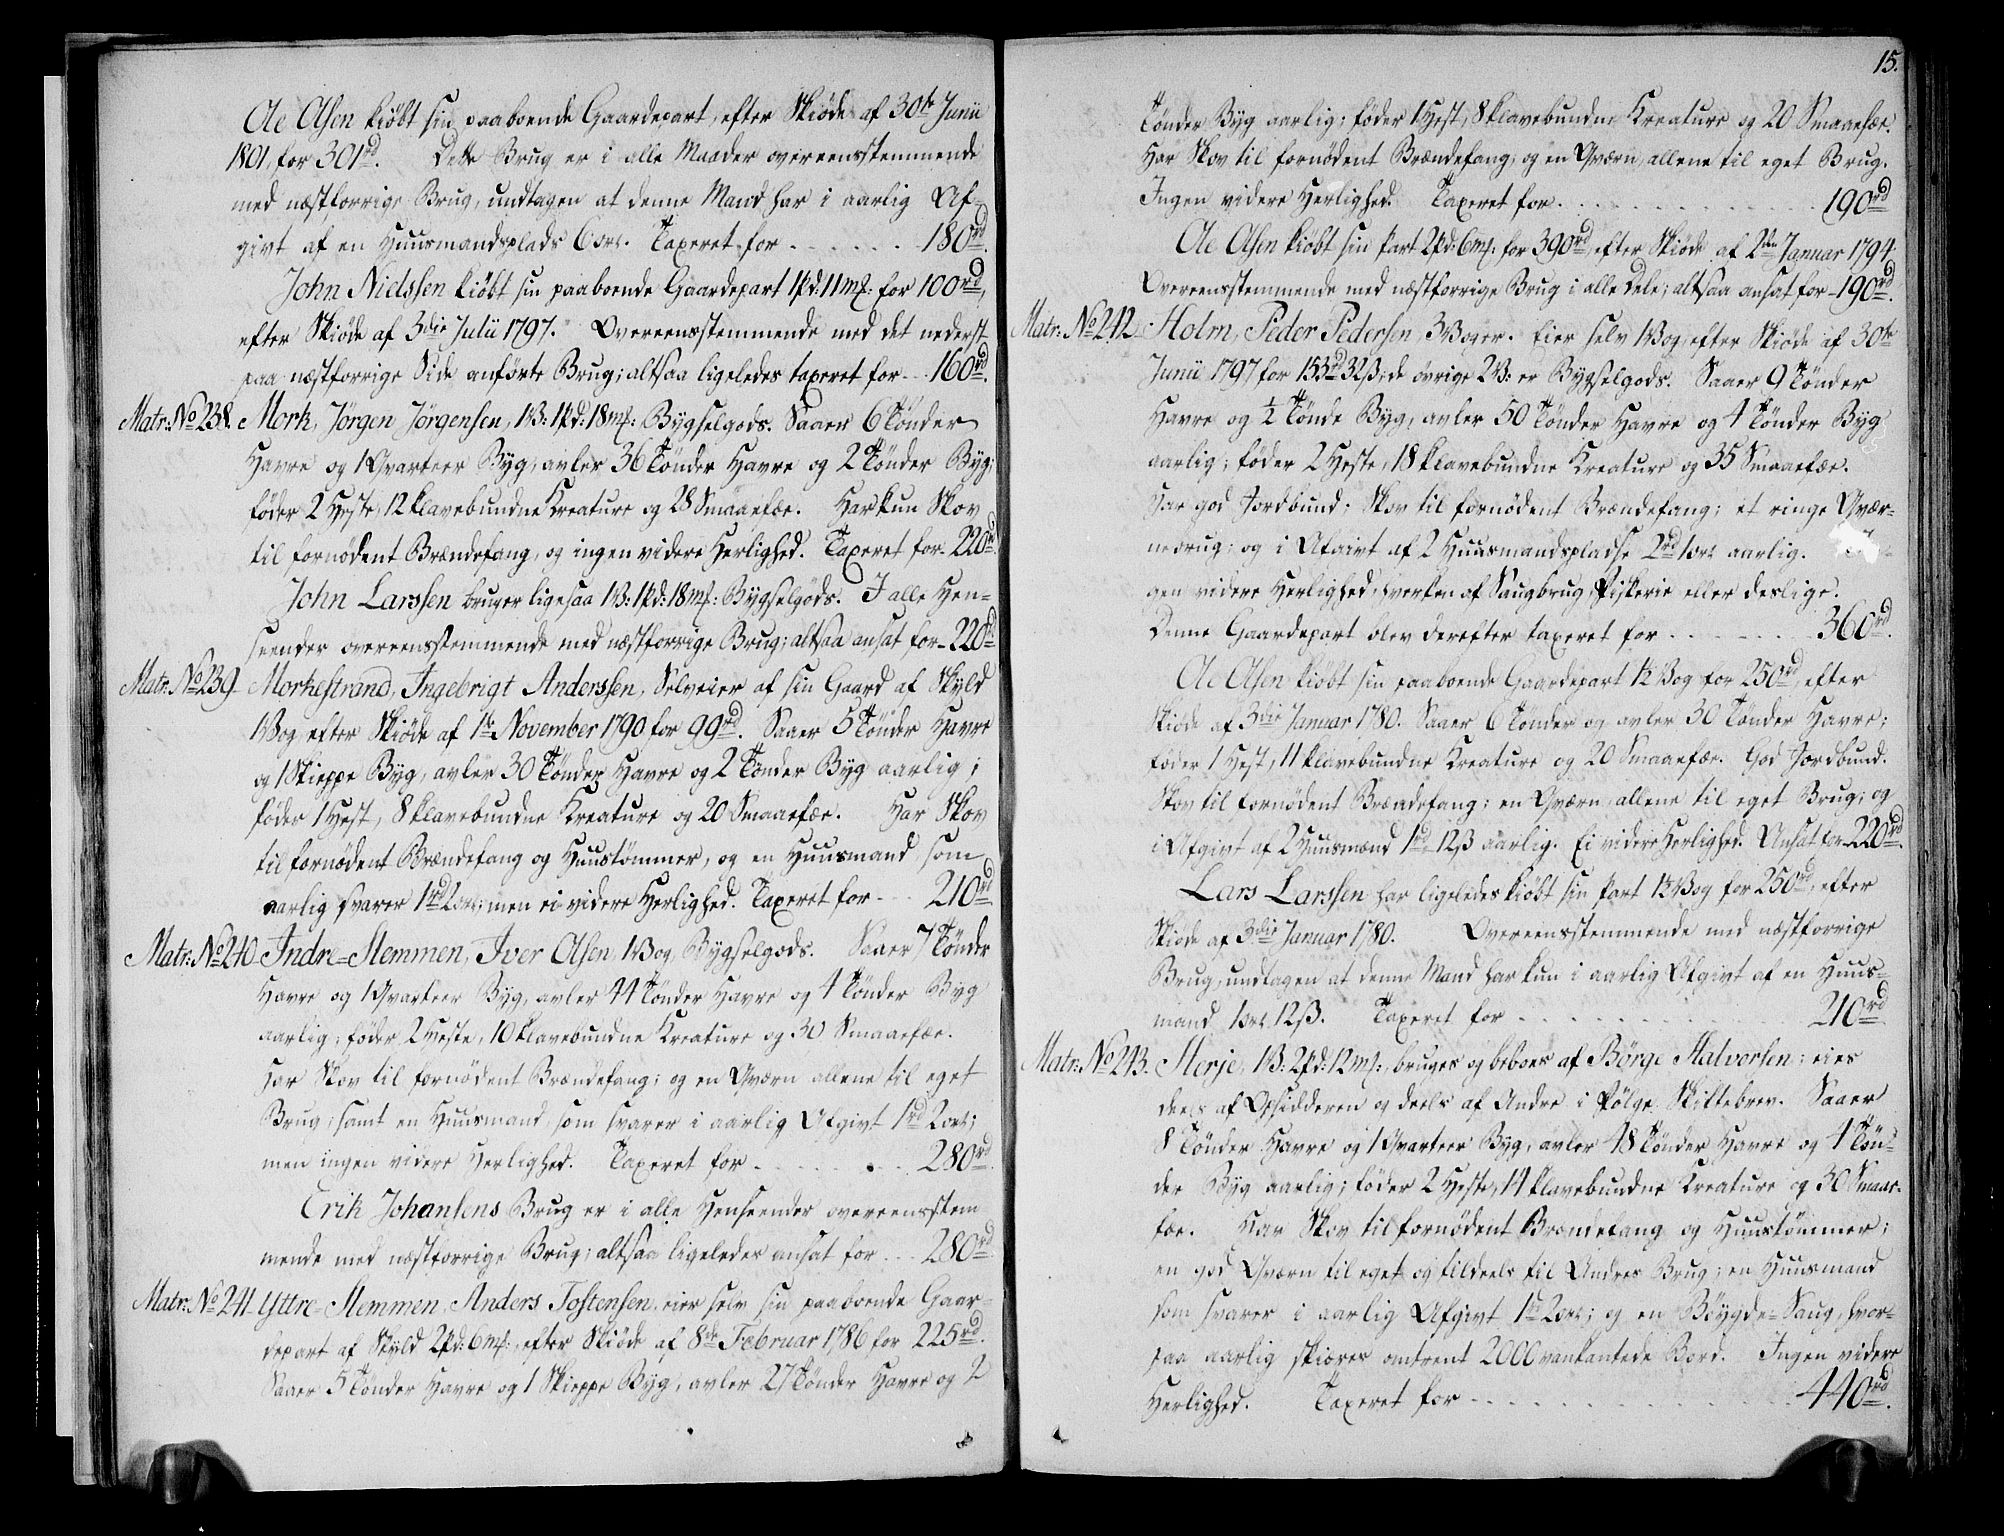 Ole Olsen kiöbt sin paaboende Gaardepart, efter Skiöde af 30te Junii
1801, for 301rd. Dette Brug er i alle Maader overeensstemmende
med næstforrige Brug, undtagen at denne Mand har i aarlig Af-
givt af en Huusmandsplads 6 ort. Taxeret for . . . . . . 180rd.
John Nielssen kiöbt sin paaboende Gaardepart 1pd: 11m[: for 100rd,
efter Skiöde af 3die Julii 1797. Overeensstemmende med det nederst
paa næstforrige Side anförte Brug; altsaa ligeledes taxeret for . . 160rd.
Matr: No 238. Mork, Jörgen Jörgensen, 1V: 1pd: 18m[: Bygselgods. Saaer 6 Tönder
Havre og 1 Qvarteer Byg; avler 36 Tönder Havre og 2 Tönder Byg;
föder 2 Heste, 12 klavebundne Kreature og 28 Smaaefæe. Har kun Skov
til fornödent Brændefang, og ingen videre Herlighed. Taxeret for - 220rd.
John Larssen bruger ligesaa 1V: 1pd: 18m[: Bygselgods. I alle Hen-
seender overeensstemmende med næstforrige Brug; altsaa ansat for - 220rd
Matr: No 239. Morkestrand, Ingebrigt Anderssen, Selveier af sin Gaard af Skyld
1 Vog efter Skiöde af 1te November 1790 for 99rd. Saaer 5 Tönder Havre
og 1 Skieppe Byg, avler 30 Tönder Havre og 2 Tönder Byg aarlig;
föder 1 Hest, 8 klavebundne Kreature og 20 Smaaefæe. Har Skov
til fornödent Brændefang og Huustömmer, og en Huusmand som
aarlig svarer 1rd 2 ort; men ei videre Herlighed. Taxeret for . . . 210rd
Matr: No 240. Indre-Hemmen, Iver Olsen, 1 Vog, Bygselgods. Saaer 7 Tönder
Havre og 1 Qvarteer Byg, avler 44 Tönder Havre og 4 Tönder Byg
aarlig; föder 2 Heste, 10 klavebundne Kreature og 30 Smaaefæe.
Har Skov til fornödent Brændefang; og en Qværn allene til eget
Brug; samt en Huusmand, som svarer i aarlig Afgivt 1rd 2 ort;
men ingen videre Herlighed. Taxeret for . . . . . . . 280rd.
Erik Johansens Brug er i alle Henseender overeensstem
mende med næstforrige Brug; altsaa ligeledes ansat for . . . 280rd
Matr: No 241. Yttre-Hemmen, Anders Tostensen, eier selv sin paaboende Gaar-
depart af Skyld 2pd: 6m[:, efter Skiöde af 8de Februar 1786 for 225rd.
Saaer 5 Tönder Havre og 1 Skieppe Byg, avler 27 Tönder Havre og 2
15.
Tönder Byg aarlig; föder 1 Hest, 8 klavebundne Kreature og 20 Smaaefæe.
Har Skov til fornödent Brændefang, og en Qværn, allene til eget Brug.
Ingen videre Herlighed. Taxeret for . . . . . . . . . . . . 190rd
Ole Olsen kiöbt sin Part 2pd: 6m[: for 390rd, efter Skiöde af 2den Januar 1794.
Overeensstemmende med næstforrige Brug i alle Dele; altsaa ansat for - 190rd.
Matr: No 242. Holm, Peder Pedersen, 3 Voger. Eier selv 1 Vog, efter Skiöde af 30te
Junii 1797 for 153rd 32ß; de övrige 2V: er Bygselgods. Saaer 9 Tönder
Havre og ½ Tönde Byg, avler 50 Tönder Havre og 4 Tönder Byg
aarlig; föder 2 Heste, 18 klavebundne Kreature og 35 Smaaefæe.
Har god Jordbund; Skov til fornödent Brændefang; et ringe Qvær-
nebrug; og i Afgivt af 2 Huusmandspladse 2rd 1 ort aarlig.
gen videre Herlighed, hverken af Saugbrug, Fiskerie eller deslige.
Denne Gaardepart blev derefter taxeret for . . . . . . . . 360rd.
Ole Olsen kiöbt sin paaboende Gaardepart 1½ Vog for 250rd, efter
Skiöde af 3die Januar 1780. Saaer 6 Tönder og avler 30 Tönder Havre;
föder 1 Hest, 11 klavebundne Kreature og 20 Smaaefæe. God Jordbund.
Skov til fornödent Brændefang; en Qværn, allene til eget Brug; og
i Afgivt af 2 Huusmænd 1rd 12ß aarlig. Ei videre Herlighed. Ansat for - 220rd.
Lars Larssen har ligeledes kiöbt sin Part 1½ Vog for 250rd, efter
Skiöde af 3die Januar 1780. Overeensstemmende med næstforrige
Brug, undtagen at denne Mand har kun i aarlig Afgivt af en Huus-
mand 1 ort 12ß. Taxeret for . . . . . . . . . . . 210rd
Matr: No 243. Herje, 1V: 2pd: 12m[:, bruges og beboes af Börge Halvorsen; eies
deels af Opsidderen og deels af Andre i Fölge Skiftebrev. Saaer
8 Tönder Havre og 1 Qvarteer Byg, avler 48 Tönder Havre og 4 Tön-
der Byg aarlig; föder 2 Heste, 14 klavebundne Kreature og 30 Smaae-
fæe. Har Skov til fornödent Brændefang og Huustömmer;
en god Qværn til eget og tildeels til Andres Brug; en Huusmand
som svarer i aarlig Afgivt 1rd 2 ort; og en Böygde-Saug, hvor-
paa aarlig skiæres omtrent 2000 vankantede Bord. Ingen videre
Herlighed. Taxeret for . . . . . . . . . . . . . 440rd.